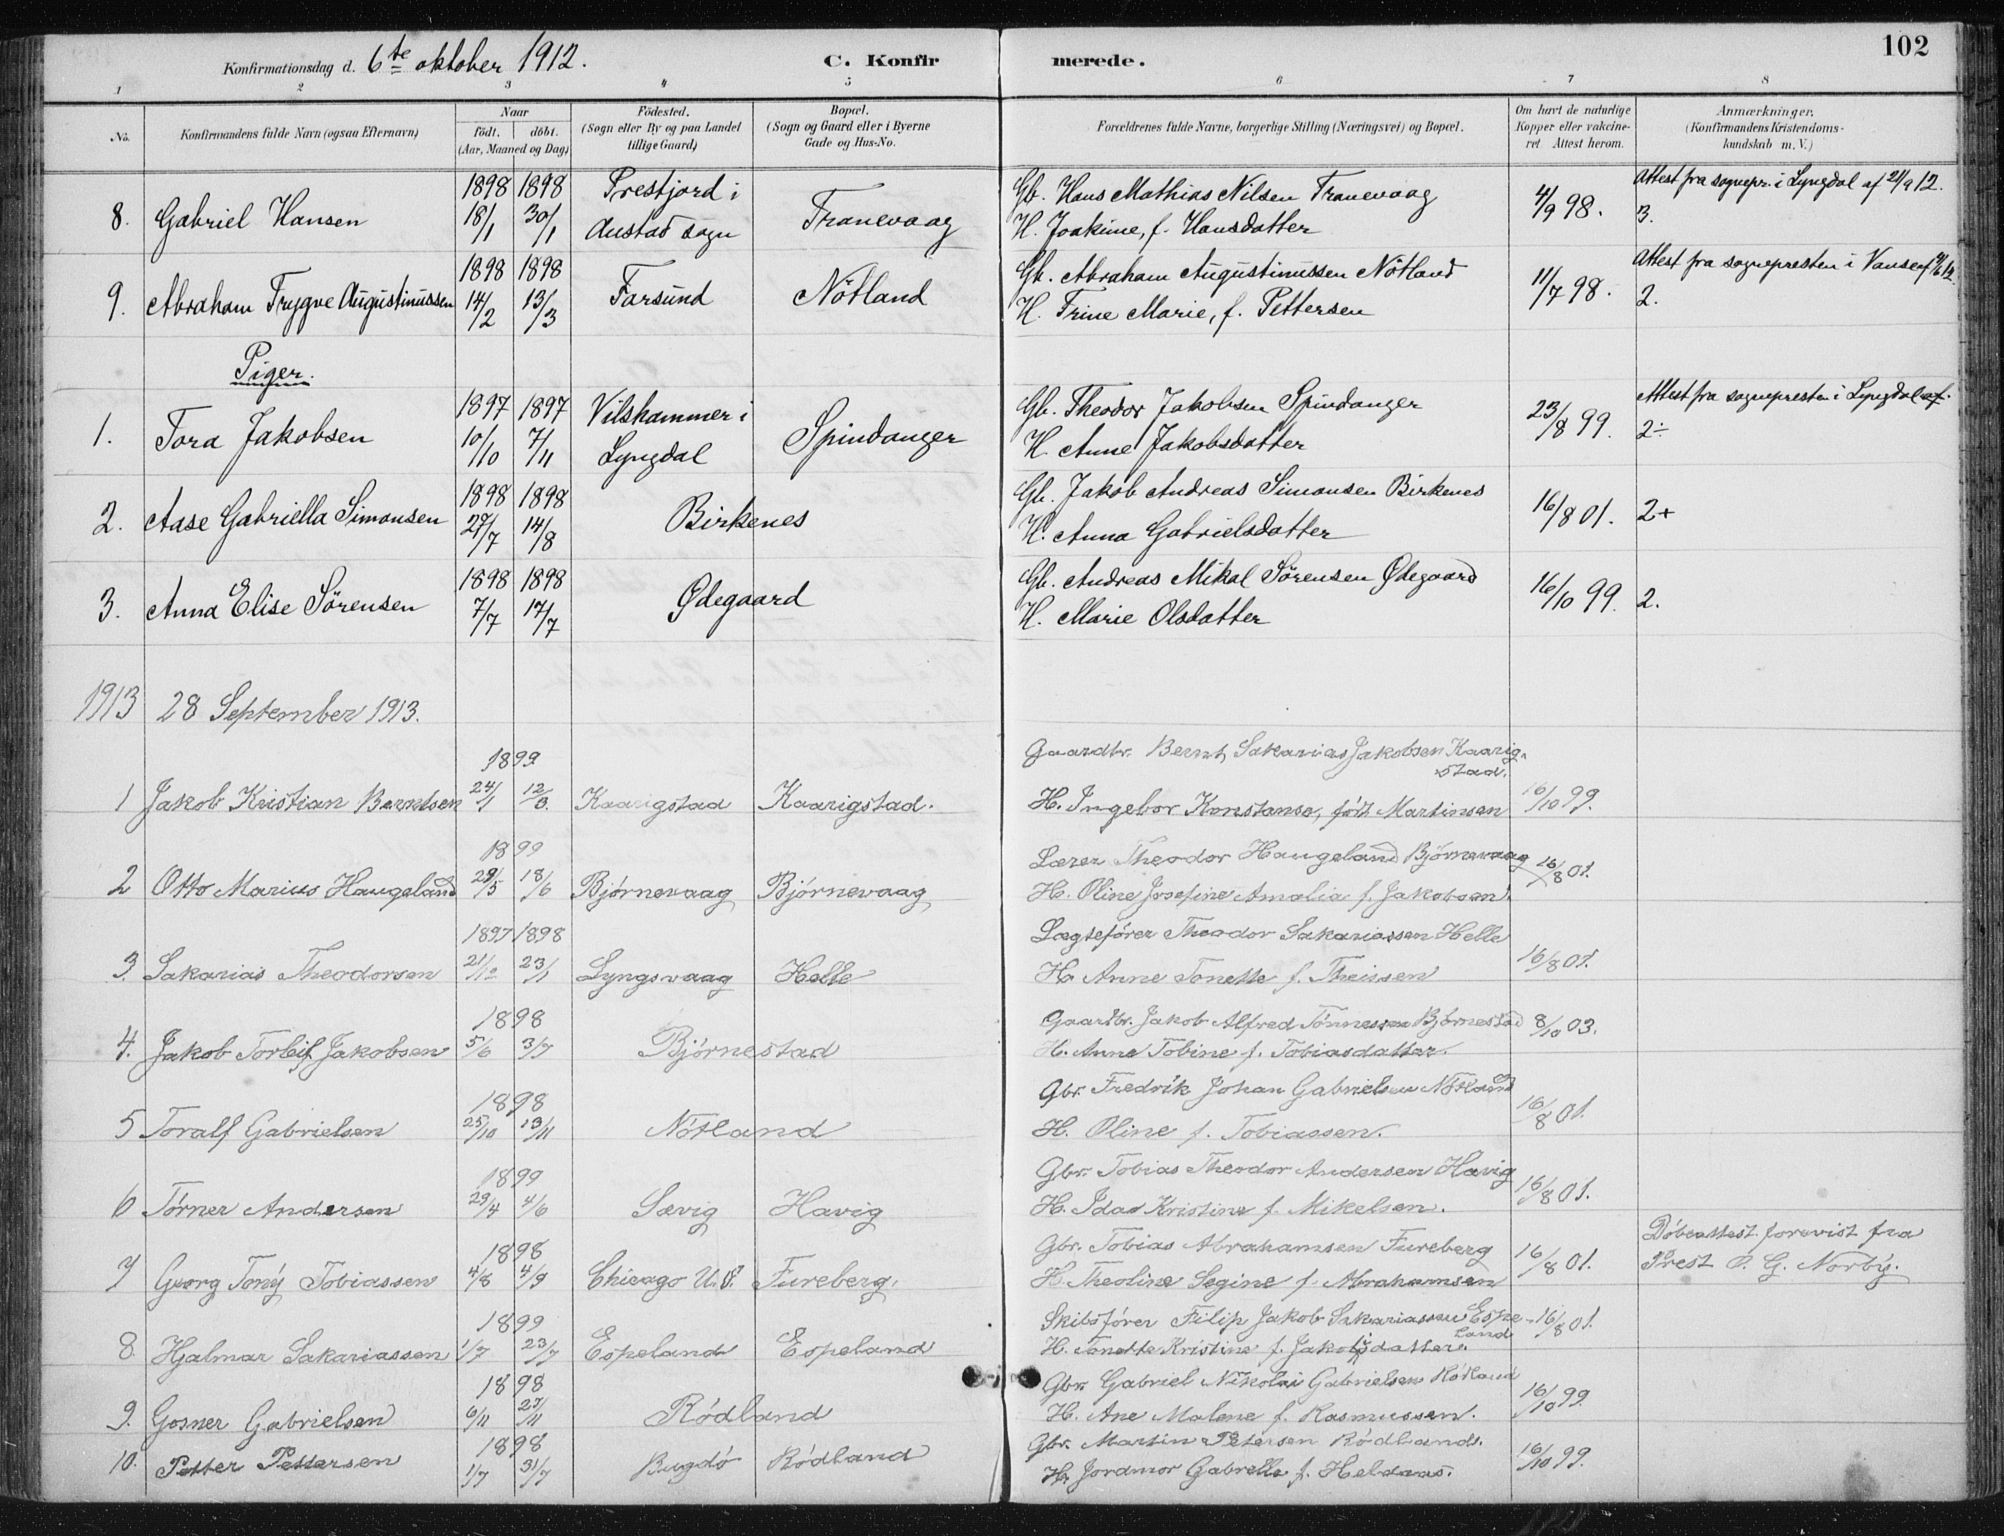 102
Konfirmationsdag d. 6te oktober 1912. C. Konfirmerede.
1 2 3 4 5 6 7 8
No. Konfirmandens fulde Navn (ogsaa Efternavn) Naar födt. döbt. (Aar, Maaned og Dag) Födested. (Sogn eller By og paa Landet tillige Gaard) Bopæl. (Sogn og Gaard eller i Byerne Gade og Hus-No. Forældrenes fulde Navne, borgerlige Stilling (Næringsvei) og Bopæl. Om havt de naturlige Kopper eller vakcineret Attest herom. Anmærkninger. (Konfirmandens Kristendomskundskab m. V.)
1898 1898 Prestjord i Gb. Hans Mathias Nilsen Tranevaag Attest fra sognepr. i Lyngdal af 21/9 12.
8. Gabriel Hansen 18/1 30/1 Austad sogn Tranevaag H. Joakime, f. Hansdatter 4/9 98. 3.
1898 1898 Gb. Abraham Augustinussen Nötland Attest fra sognepresten i Vanse
9. Abraham Trygve Augustinussen 14/2 13/3 Farsund Nötland H. Trine Marie, f. Pettersen 11/7 98. 2.
Piger.
1897 1897 Vilshammer i Gb. Theodor Jakobsen Spindanger Attest fra sognepresten i Lyngdal af.
1. Tora Jakobsen 10/10 7/11 Lyngdal Spindanger H. Anne Jakobsdatter 23/8 99. 2÷
1898 1898 Gb. Jakob Andreas Simonsen Birkenes
2. Aase Gabriella Simonsen 27/7 14/8 Birkenes H. Anna Gabrielsdatter 16/8 01. 2+
1898 1898 Gb. Andreas Mikal Sörensen Ødegaard
3. Anna Elise Sörensen 7/7 17/7 Ødegaard H. Marie Olsdatter 16/10 99. 2.
1913 28 September 1913.
1899 Gaardbr. Bernt Sakarias Jakobsen Kaarigstad.
1 Jakob Kristian Berntsen 24/1 12/3 Kaarigstad Kaarigstad. H. Ingebor Konstanse, född Martinsen 16/10 99.
1899 Lærer Theodor Haugeland Björnevaag
2 Otto Marius Haugeland 29/5 18/6 Björnevaag Björnevaag H. Oline Josefine Amalia f. Jakobsen. 16/8 01.
1897 1898 Lægtefører Theodor Sakariassen Helle
3. Sakarias Theodorsen 21/12 23/1 Lyngsvaag Helle H. Anne Tonette f. Theissen 16/8 01.
1898 Gaardbr. Jakob Alfred Tönnessen Björnestad
4. Jakob Torleif Jakobsen 5/6 3/7 Björnestad H. Anne Tobine f. Tobiasdatter. 8/10 03.
1898 Gbr. Fredrik Johan Gabrielsen Nötland
5 Toralf Gabrielsen 25/10 13/11 Nötland H. Oline f. Tobiassen. 16/8 01.
1899 Gbr. Tobias Theodor Andersen Havig
6 Törner Andersen 29/4 4/6 Sævig Havig H. Ida Kristine f. Mikelsen. 16/8 01.
1898 Gbr. Tobias Abrahamsen Fureberg Döbeattest forevist fra
7 Georg Tony Tobiassen 4/8 4/9 Chicago U.S. Fureberg, H. Theoline Segine f. Abrahamsen 16/8 01. Prest G. Norby.
1899 Skibsförer Filip Jakob Sakariassen Espeland
8. Hjalmar Sakariassen 1/7 23/7 Espeland Espeland H. Tonette Kristine f. Jakobsdatter. 16/8 01.
1898 Gbr. Gabriel Nikolai Gabrielsen Rödland
9. Gosner Gabrielsen 6/11 27/11 Rödland H. Ane Malene f. Rasmussen. 16/10 99.
1898 Gbr. Martin Petersen Rödland.
10. Petter Pettersen 1/7 31/7 Bugdö Rödland H. Jordmor Gabrelle f. Heldaas. 16/10 99.